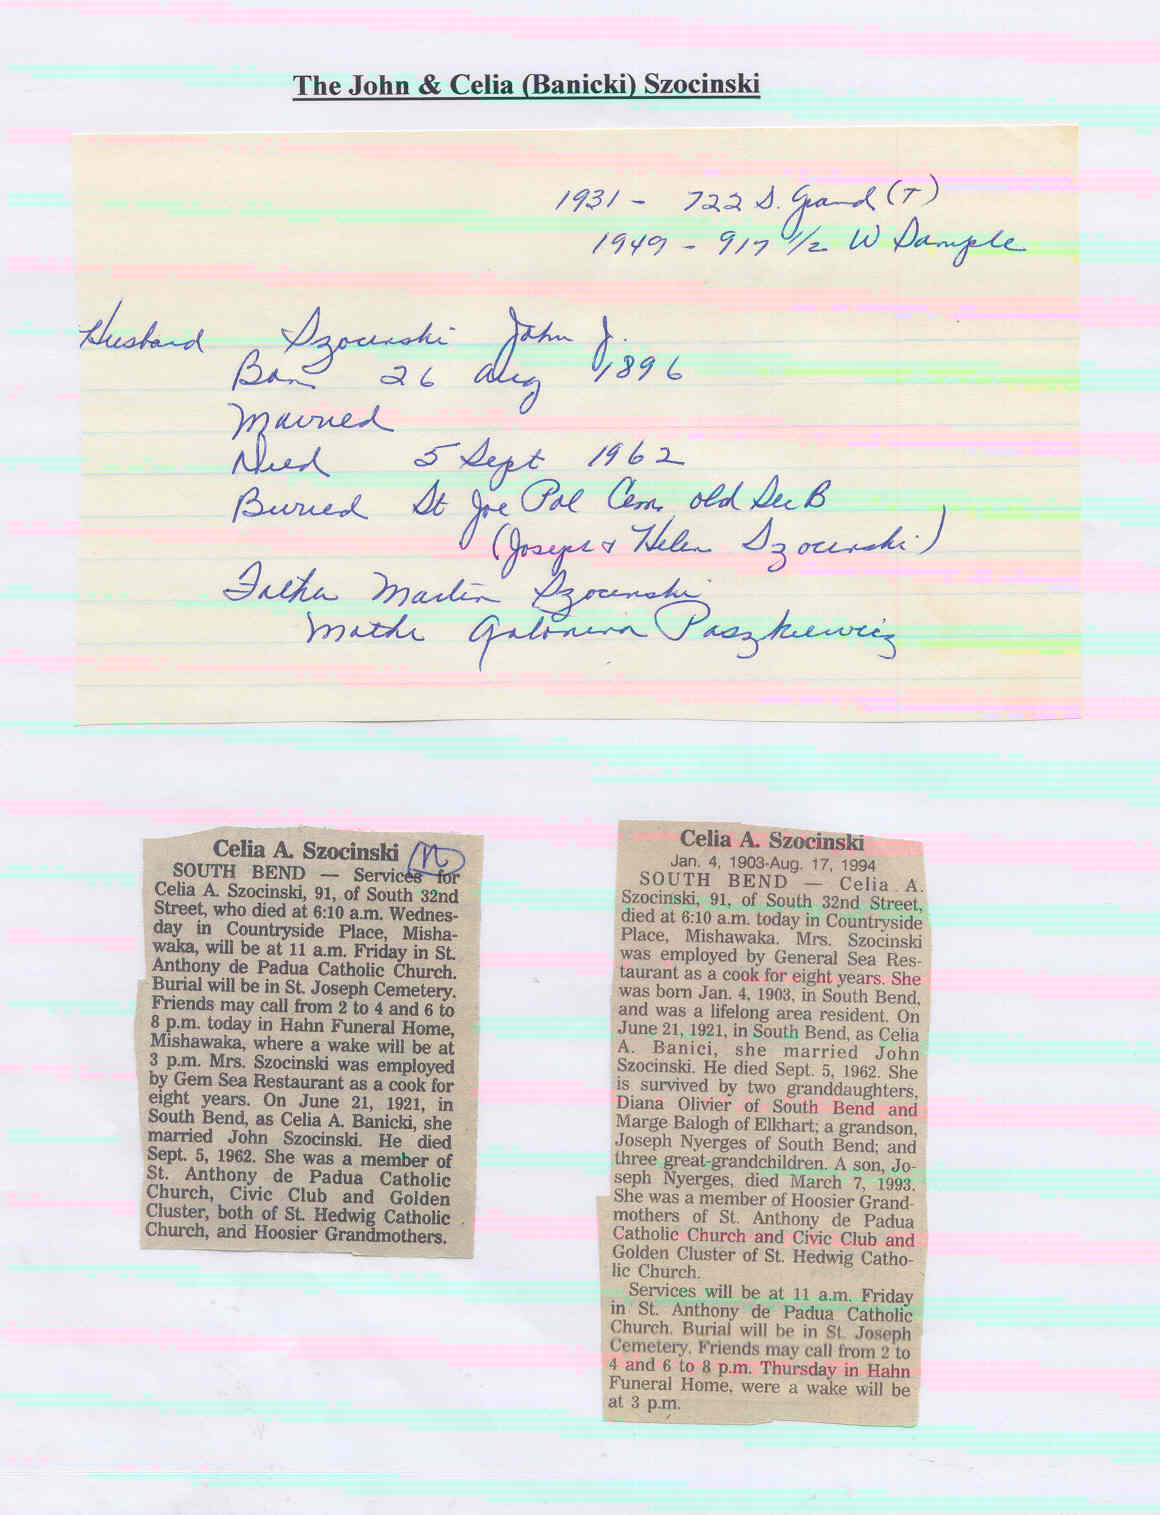 The John & Celia (Banicki) Szocinski
1931 - 722 S. Grand (T)
1949 - 917 1/2 W Sample
Husband Szocinski John J.
Born 26 Aug 1896
Married
Died 5 Sept 1962
Buried St Joe Pol Cem old Sec B
(Joseph & Helen Szocinski)
Father Martin Szocinski
Mother Paszkiewicz
Celia A. Szocinski (N)
SOUTH BEND — Services for
Celia A. Szocinski, 91, of South 32nd
Street, who died at 6:10 a.m. Wednes-
day in Countryside Place, Misha-
waka, will be at 11 a.m. Friday in St.
Anthony de Padua Catholic Church.
Burial will be in St. Joseph Cemetery.
Friends may call from 2 to 4 and 6 to
8 p.m. today in Hahn Funeral Home,
Mishawaka, where a wake will be at
3 p.m. Mrs. Szocinski was employed
by Gem Sea Restaurant as a cook for
eight years. On June 21, 1921, in
South Bend, as Celia A. Banicki, she
married John Szocinski. He died
Sept. 5, 1962. She was a member of
St. Anthony de Padua Catholic
Church, Civic Club and Golden
Cluster, both of St. Hedwig Catholic
Church, and Hoosier Grandmothers.
Celia A. Szocinski
Jan. 4, 1903-Aug. 17, 1994
SOUTH BEND — Celia A.
Szocinski, 91, of South 32nd Street,
died at 6:10 a.m. today in Countryside
Place, Mishawaka. Mrs. Szocinski
was employed by General Sea Res-
taurant as a cook for eight years. She
was born Jan. 4, 1903, in South Bend,
and was a lifelong area resident. On
June 21, 1921, in South Bend, as Celia
A. Banici, she married John
Szocinski. He died Sept. 5, 1962. She
is survived by two granddaughters,
Diana Olivier of South Bend and
Marge Balogh of Elkhart; a grandson,
Joseph Nyerges of South Bend; and
three great-grandchildren. A son, Jo-
seph Nyerges, died March 7, 1993.
She was a member of Hoosier Grand-
mothers of St. Anthony de Padua
Catholic Church and Civic Club and
Golden Cluster of St. Hedwig Catho-
lic Church.
Services will be at 11 a.m. Friday
in St. Anthony de Padua Catholic
Church. Burial will be in St. Joseph
Cemetery. Friends may call from 2 to
4 and 6 to 8 p.m. Thursday in Hahn
Funeral Home, were a wake will be
at 3 p.m.